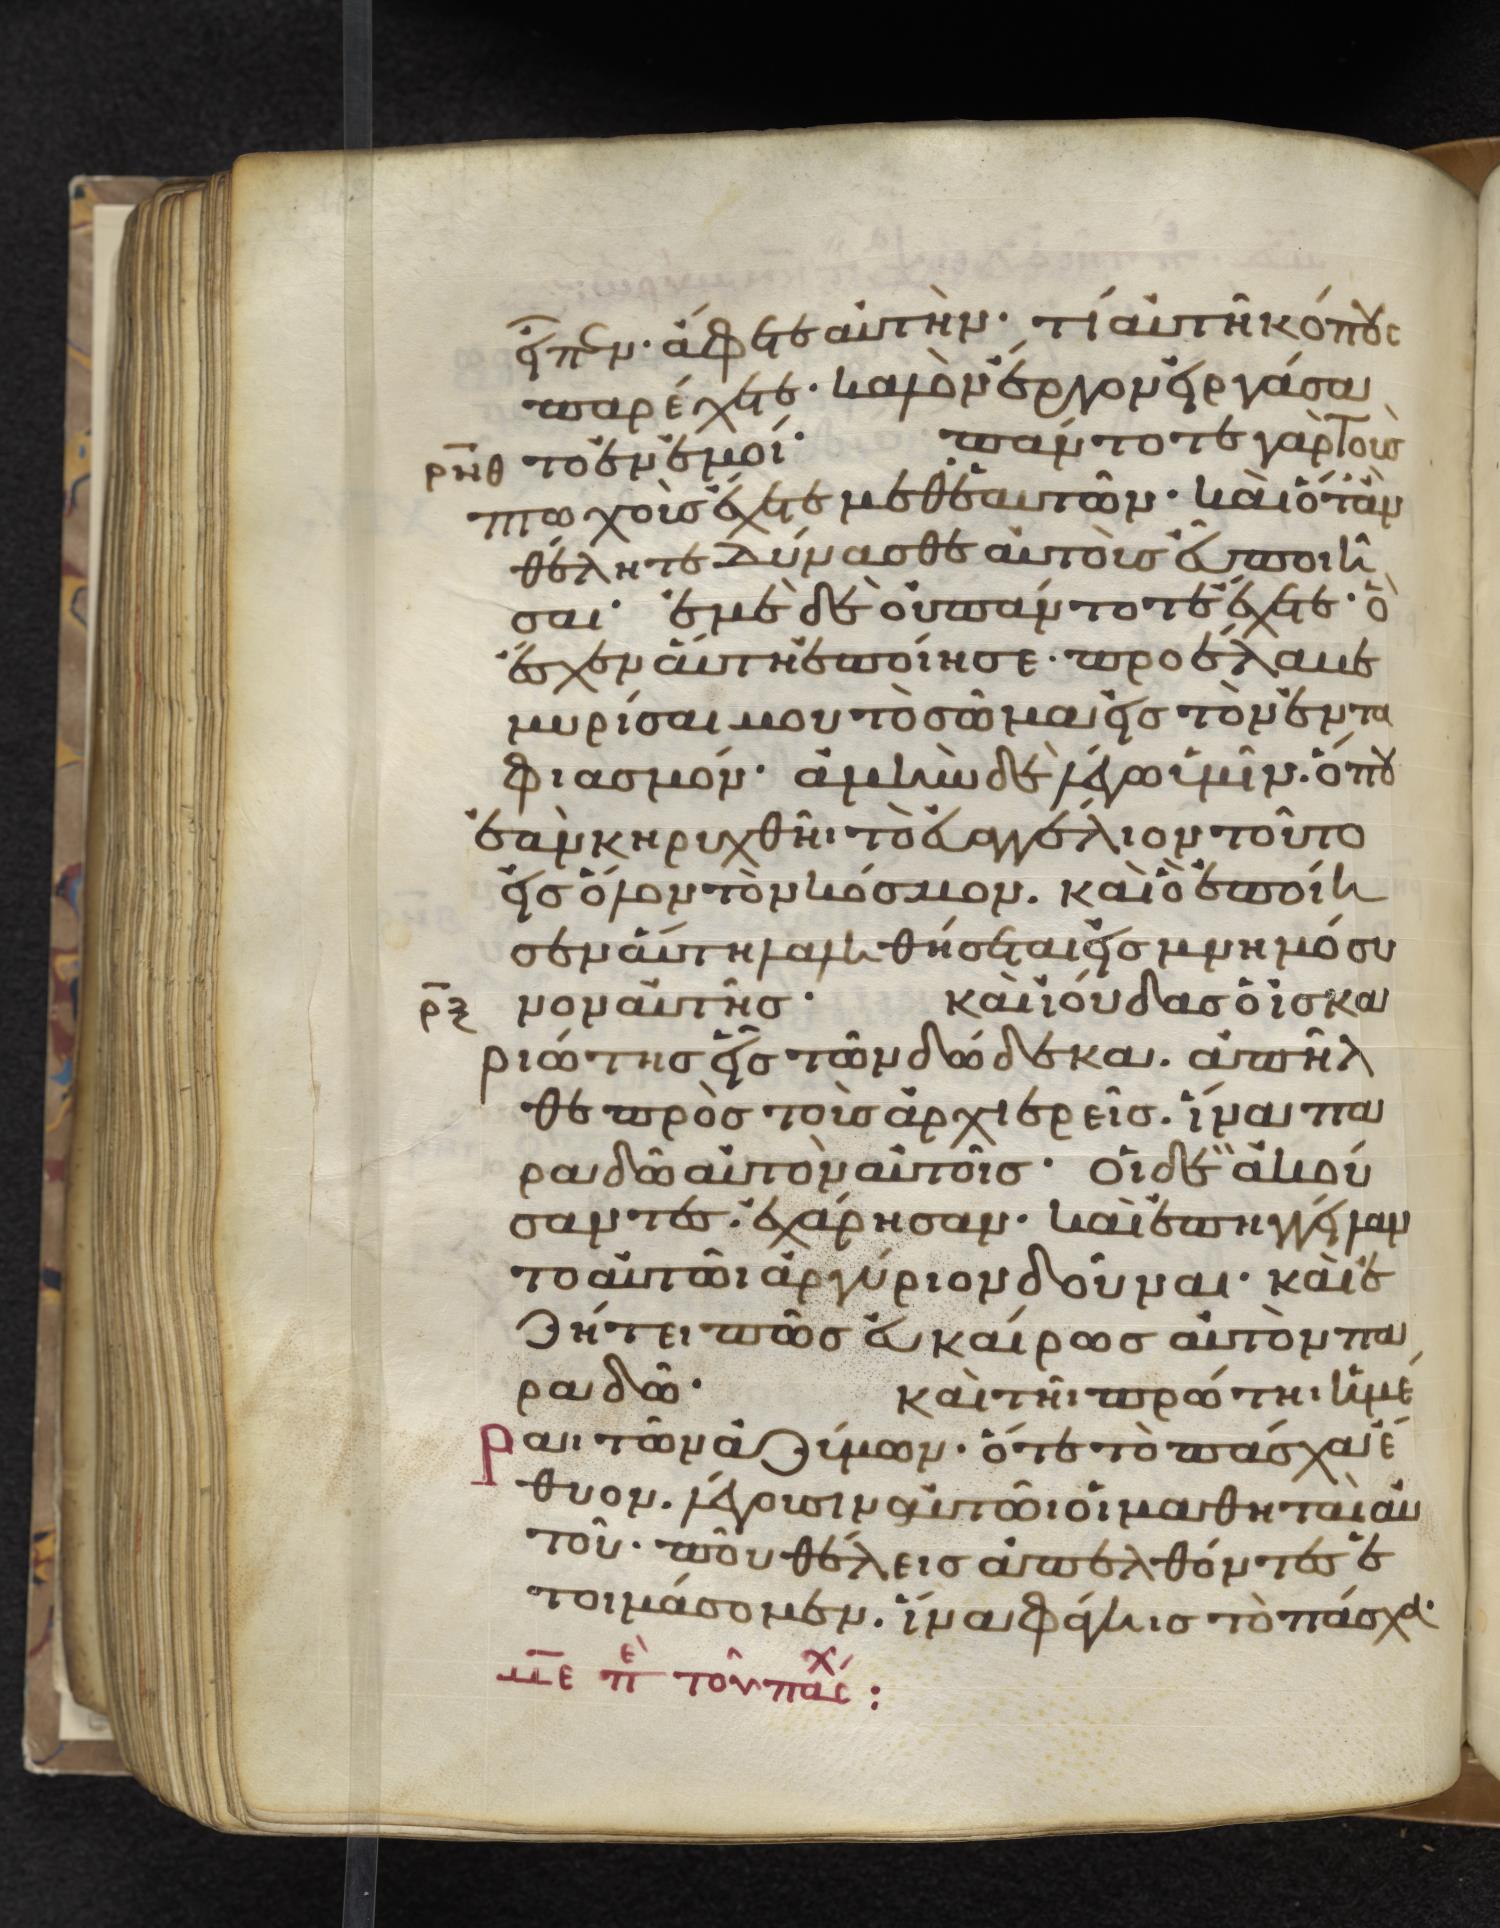 εἶπεν· ἄφετε αὐτήν· τί αὐτῆ κόπους
παρέχετε· καλὸν ἔργον εἰργάσα
ρνθ το ἐν ἐμοί· πάντοτε γὰρ τοὺς
πτωχοὺς ἔχετε μεθ' ἑαυτῶν· καὶ ὅταν
θέλητε δύνασθε αὐτοὺς εὖ ποιῆ
σαι· ἐμὲ δὲ οὐ πάντοτε ἔχετε· ὃ
ἔσχεν αὕτη ἐποίησε· προέλαβε
μυρίσαι μου τὸ σῶμα εἰς τὸν ἐντα
φιασμόν· ἀμὴν δὲ λέγω ὑμῖν· ὅπου
ἐὰν κηρυχθῆι τὸ εὐαγγέλιον τοῦτο
εἰς ὅλον τὸν κόσμον. καὶ ὃ ἐποίη
σεν αὕτη λαληθήσεται εἰς μνημόσυ
ρξ νον αὐτῆς· καὶ ἰούδας ὁ ἰσκα
ριώτης εἷς τῶν δώδεκα. ἀπῆλ
θε πρὸς τοὺς ἀρχιερεῖς. ἵνα πα
ραδῶ αὐτὸν αὐτοῖς· οἱ δὲ ἀκού
σαντες. ἐχάρησαν· καὶ ἐπηγγείλαν
το αὐτῶι ἀργύριον δοῦναι· καὶ ἐ
ζήτει πῶς εὐκαίρως αὐτὸν πα
ραδῶ· καὶ τῆι πρώτηι ἡμέ
ραι τῶν ἀζύμων· ὅτε τὸ πάσχα ἔ
θυον. λέγουσιν αὐτῶι οἱ μαθηταὶ αὐ
τοῦ· ποῦ θέλεις ἀπελθόντες ἑ
τοιμάσομεν. ἵνα φάγηις τὸ πάσχα·
με πε τοῦ πάσχ :